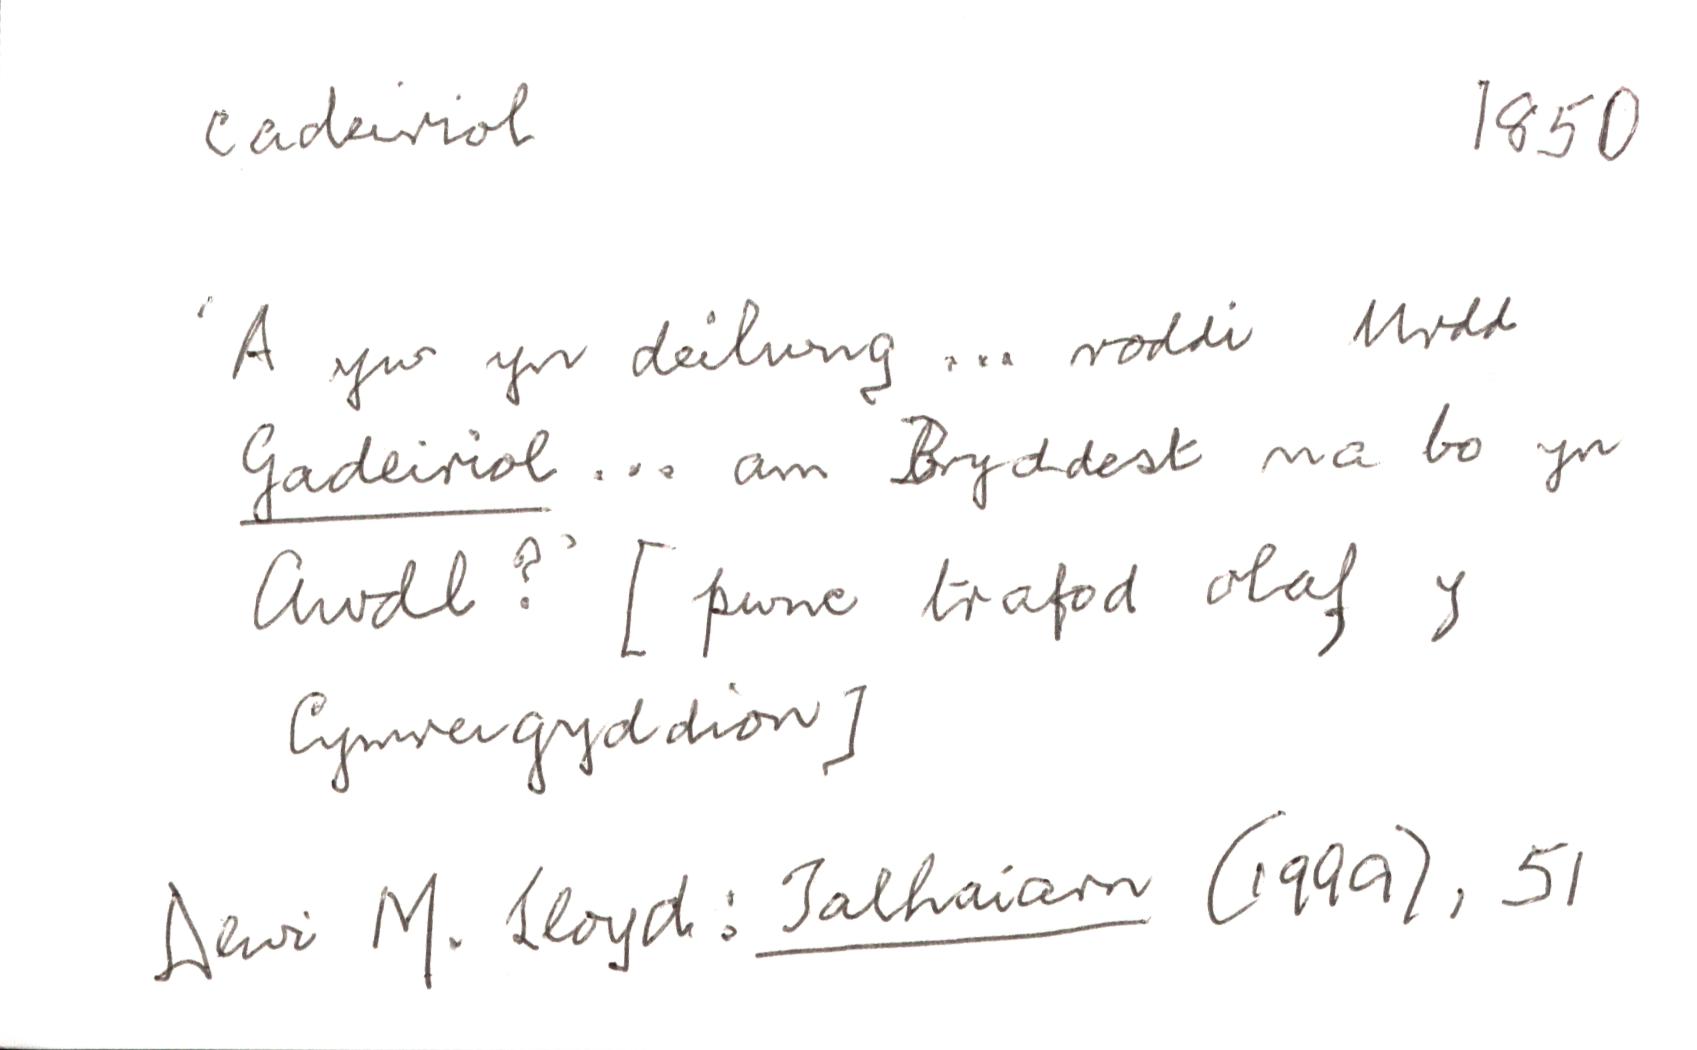 cadeiriol 1850
'A yw yn deilwng ... roddi Urdd
Gadeiriol ... am Bryddest na bo yn
Awdl?' [pwnc trafod olaf y
Cymreigyddion]
Dewi M. Lloyd: Talhaiarn (1999), 51